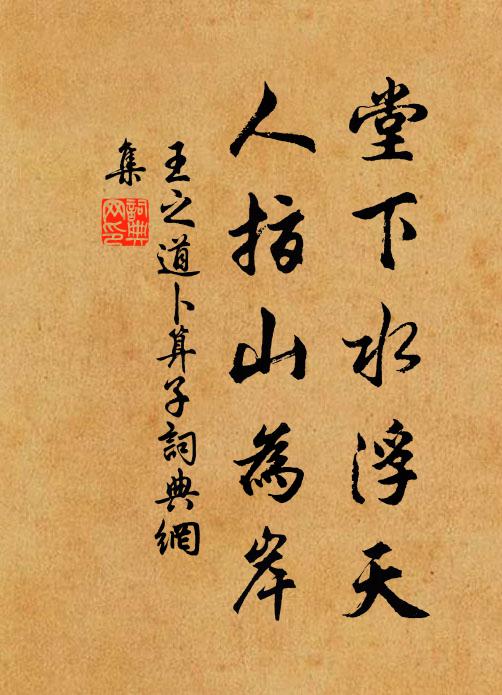 堂下水浮天
人指山為岸
王之道卜算子詞典網
集
詞典網印